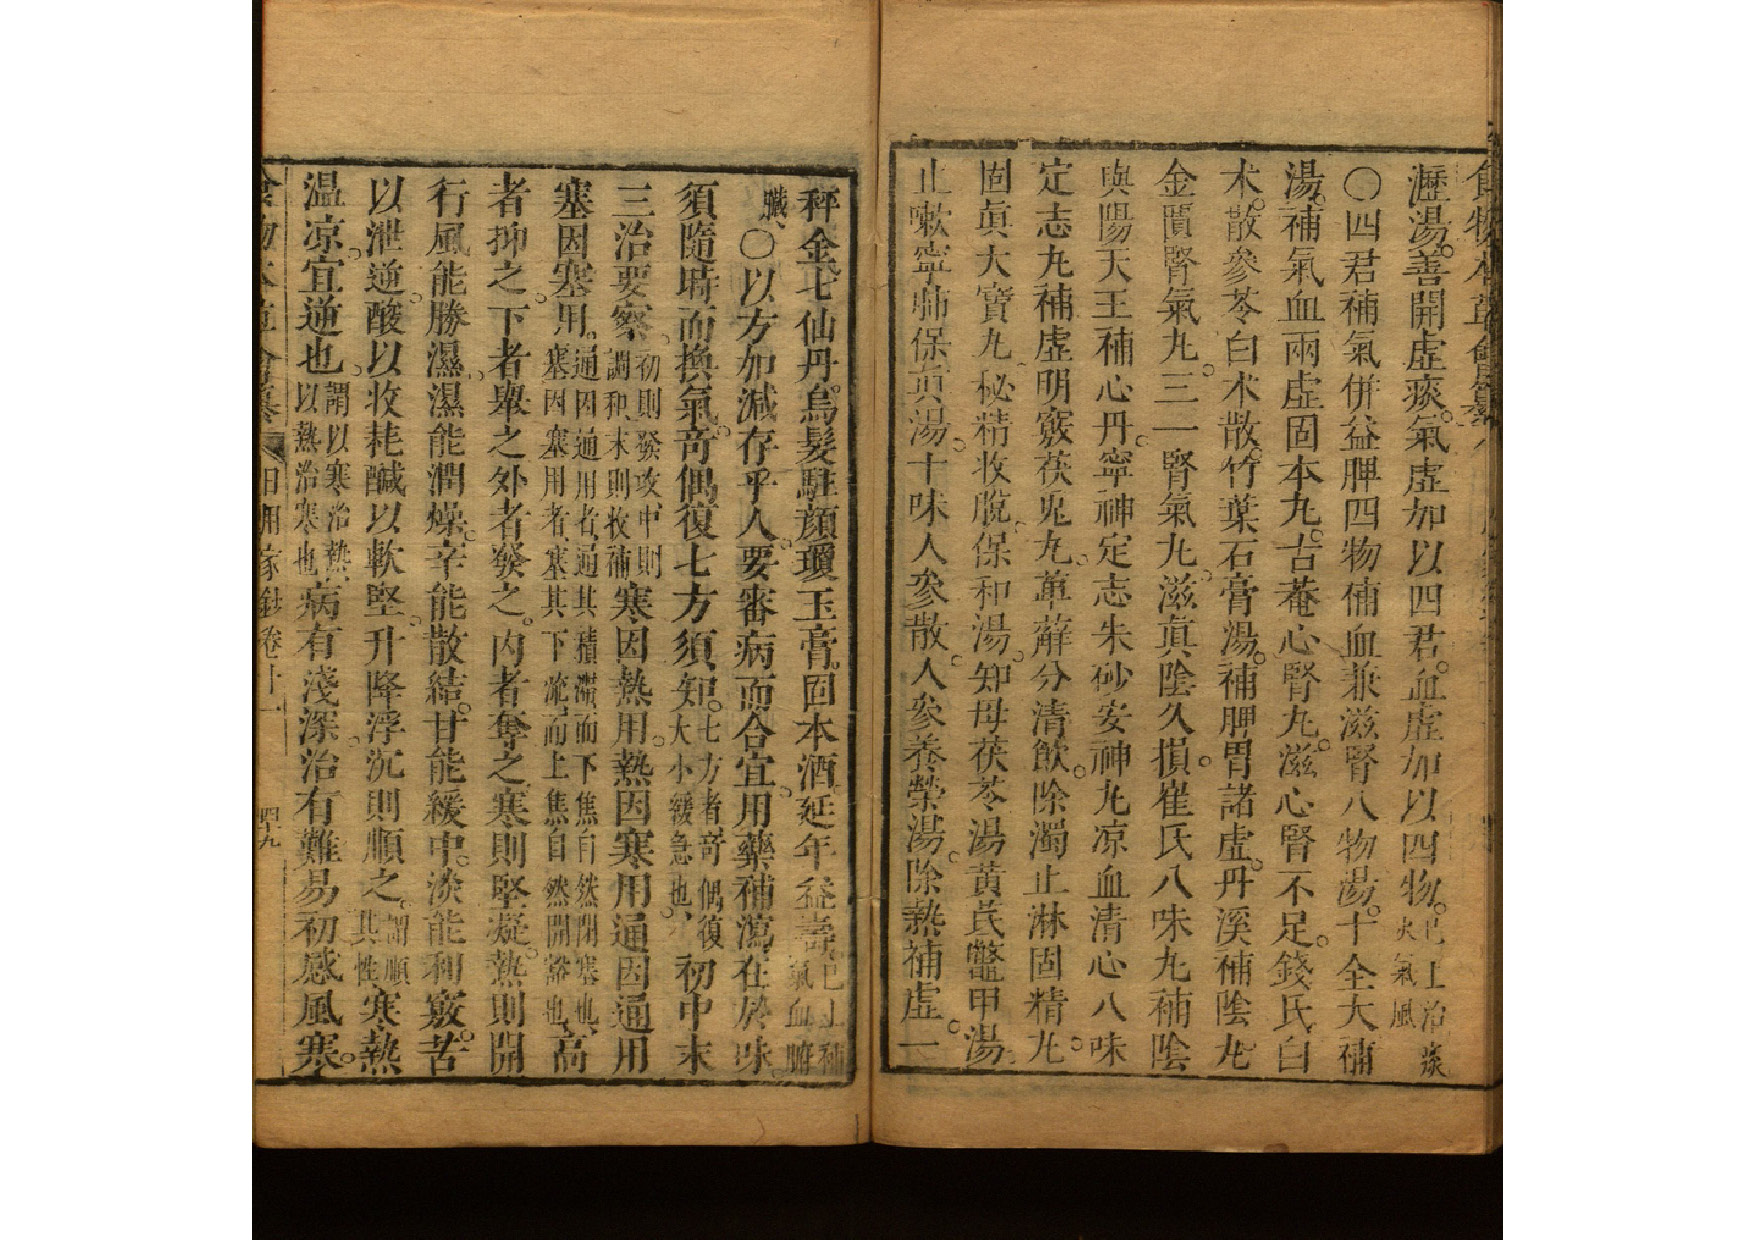 瀝湯。善開虛痰。氣虛加以四君。血虛加以四物。已上治痰火氣風
〇四君補氣併益脾四物俌血兼滋腎八物湯。十全大補
湯。補氣血兩虛固本丸。古菴心腎丸。滋心腎不足。錢氏白
朮。散參苓白朮散。竹葉石膏湯。補脾胃諸虛。丹溪補陰丸
金匱腎氣丸。三一腎氣丸。滋眞陰久損。崔氏八味丸補陰
與陽天王補心丹。寧神定志朱砂安神丸凉血清心八味
定志丸補虛明竅茯兎丸。萆薢分清飲。除濁止淋固精丸。
固眞大寶丸。秘精收脫。保和湯。知母茯苓湯黃芪鼈甲湯
止嗽寧肺保眞湯。十味人參散。人參養榮湯。除熱補虛。一
秤金七仙丹。烏髮駐顔瓊玉膏。固本酒。延年益壽。已上補氣血腑
臟、〇以方加減存乎人。要審病而合宜。用藥補瀉在於味。
須隨時而換氣。奇偶復七方須知。七方者奇偶復大小緩急也、初中末
三治要察。初則發攻、中則調和、末則收補寒因熱用。熱因寒用通因通用
塞因塞用。通因通用者、通其積滯而下焦自然閉塞也、塞因塞用者、塞其下流而上焦自然開豁也高
者抑之。下者舉之外者發之。內者奪之寒則堅凝。熱則開
行風能勝濕。濕能潤燥。辛能散結。甘能緩中。淡能利竅。苦
以泄逆。酸以收耗鹹以軟堅。升降浮沉則順之。謂順其性寒熱
温凉宜逆也。謂以寒治熱、以熱治寒也病有淺深。治有難易初感風寒。
日用家鈔卷十一
四十九